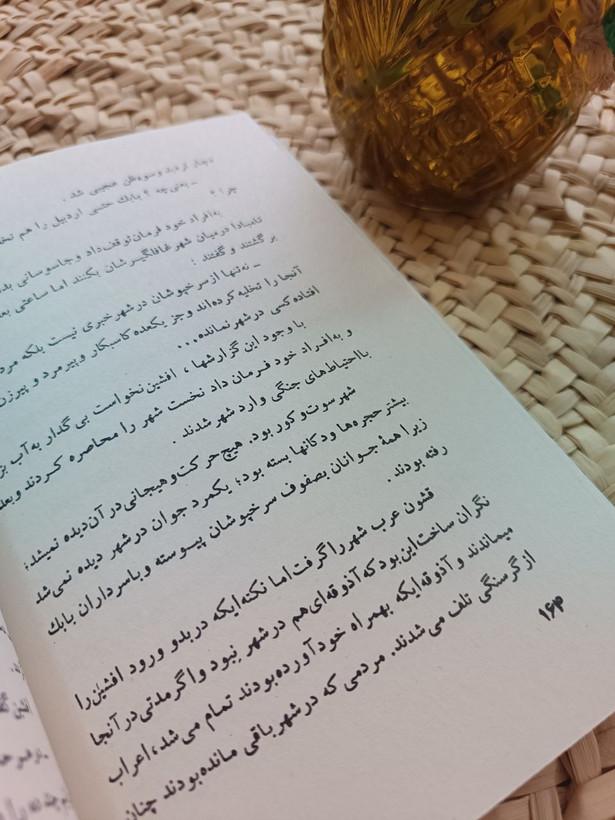 دچار تردید و سوءظن عجیبی شد.
چرا؟
ـ یعنی چه؟ بابک حتی اردبیل را هم
به‌افراد خود فرمان توقف داد و جاسوسانی
تامبادا درمیان شهر غافلگیرشان بکنند اما ساعتی
برگشتند و گفتند:
ـ نه‌تنها ازسرخپوشان درشهر خبری نیست بلکه
آنجا را تخلیه کرده‌اند وجز یکعده کاسبکار وپیرمرد و پیرزن
افتاده کسی درشهر نمانده...
باوجود این گزارشها، افشین نخواست بی گدار به‌آب
و به‌افراد خود فرمان داد نخست شهر را محاصره کردند و
بااحتیاط‌های جنگی وارد شهر شدند.
شهر سوت و کور بود. هیچ حرکت و هیجانی در آن دیده نمیشد؛
بیشتر حجره‌ها ودکانها بسته بود؛ یکمرد جوان در شهر دیده نمی‌شد
زیرا همهٔ جوانان بصفوف سرخپوشان پیوسته و باسرداران بابك
رفته بودند.
قشون عرب شهر را گرفت اما نکته‌ایکه دربدو ورود افشین را
نگران ساخت این بود که آذوقه‌ای هم در شهر نبود واگر مدتی در آنجا
میماندند و آذوقه‌ایکه بهمراه خود آورده بودند تمام می‌شد، اعراب
از گرسنگی تلف می‌شدند. مردمی که در شهر باقی مانده بودند چنان
۱۶۴